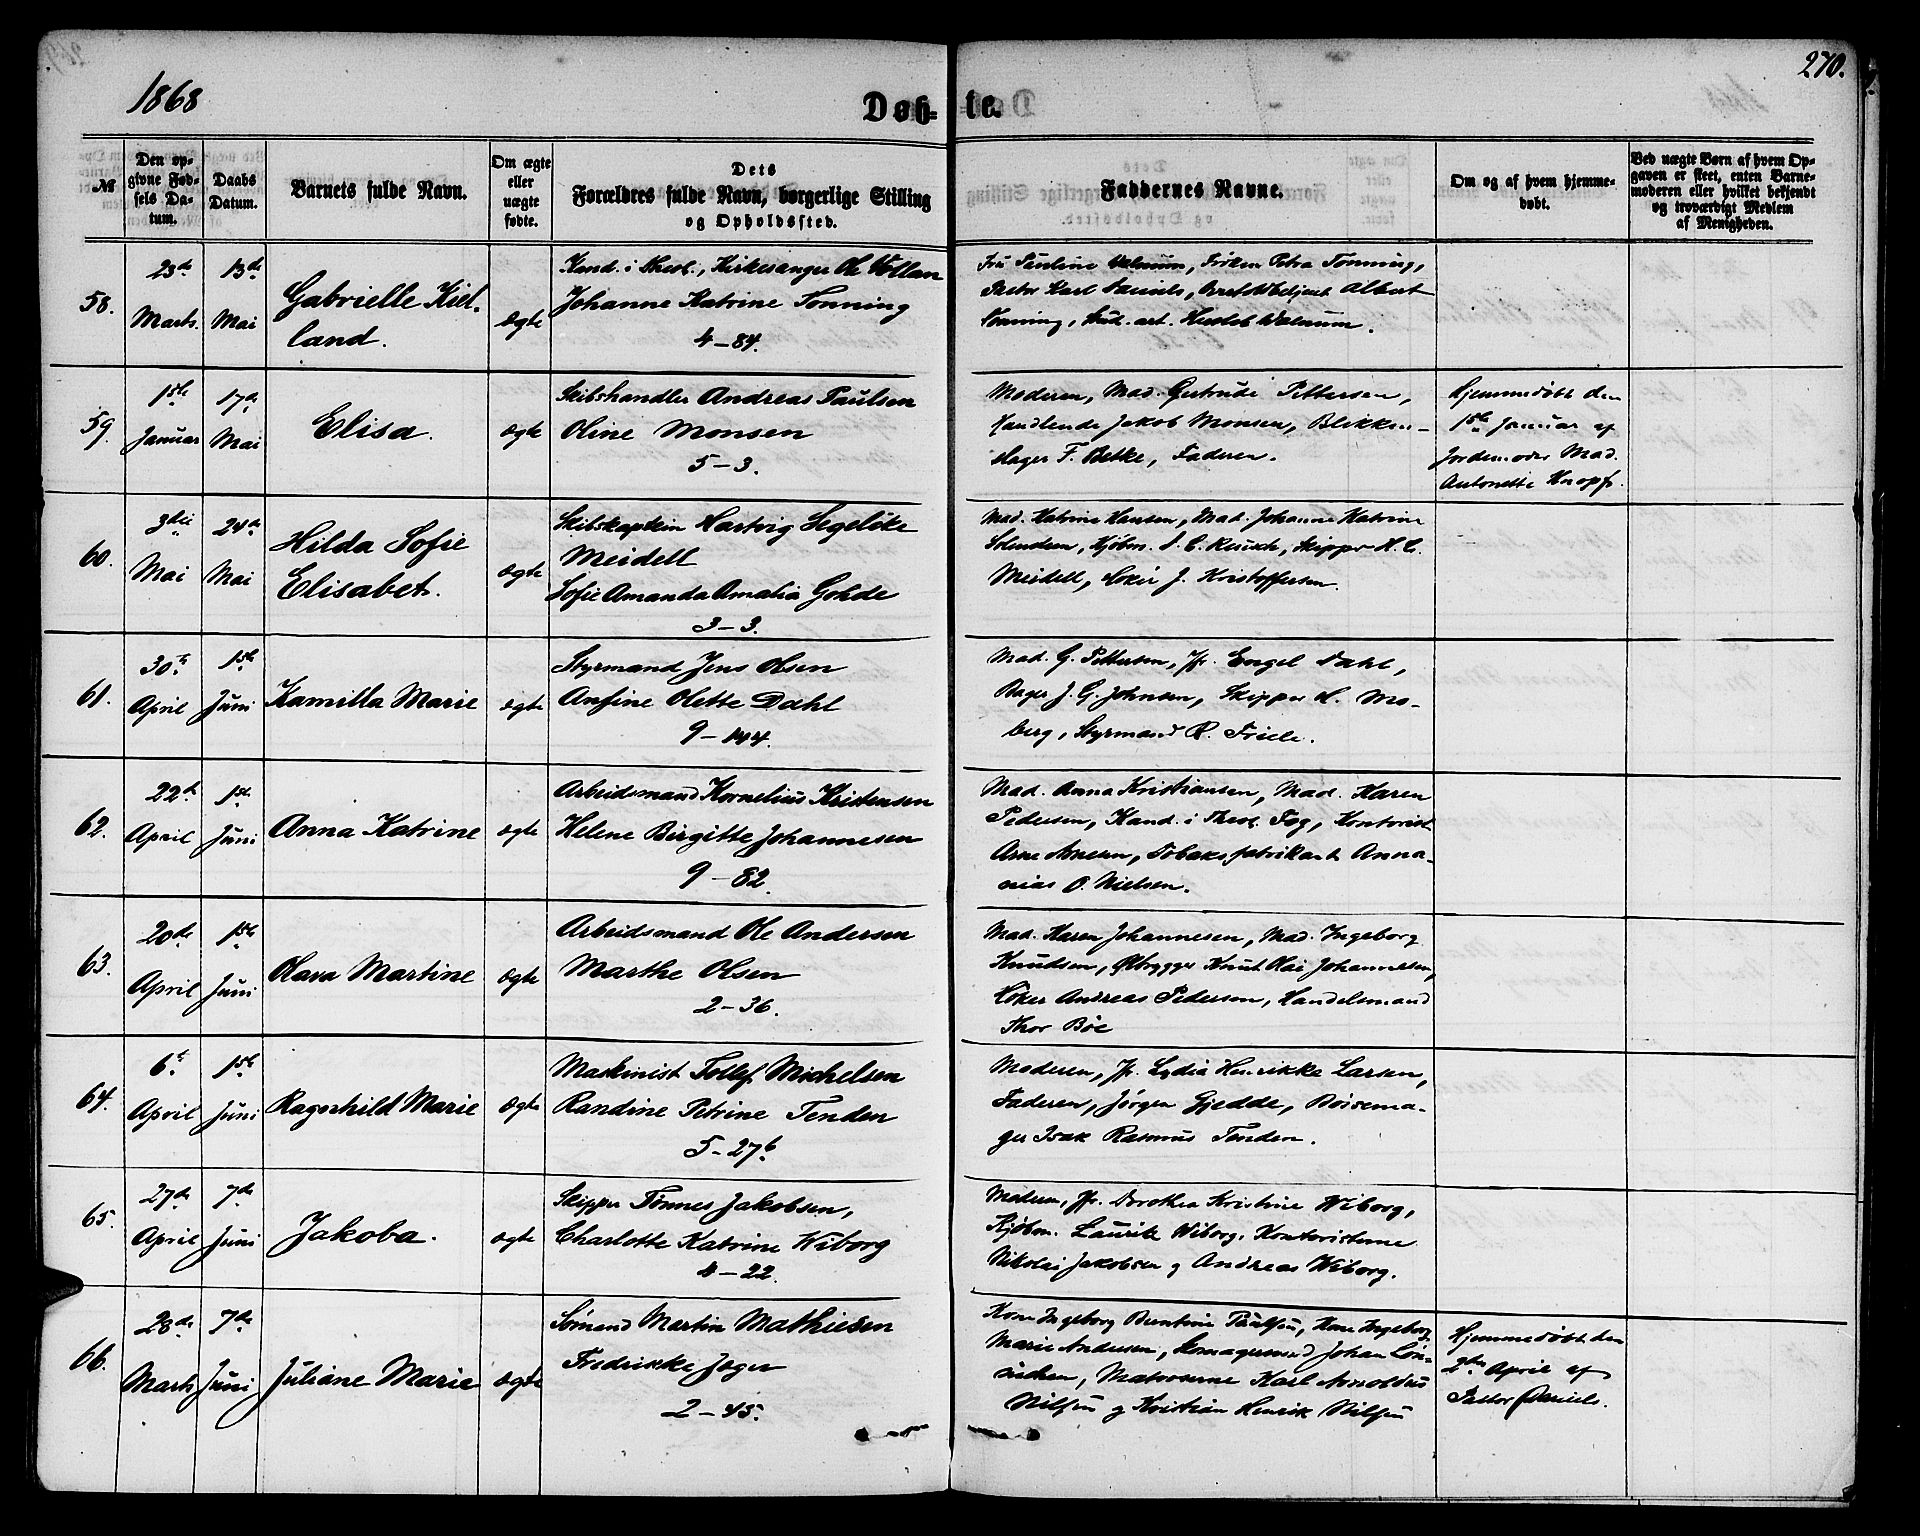 1868
270.
Døb- te.
№
Den op-
givne Fød-
sels Da-
tum.
Daabs
Datum.
Barnets fulde Navn.
Om ægte
eller
uægte
fødte.
Dets
Forældres fulde Navn, borgerlige Stilling
og Opholdssted.
Faddernes Navne.
Om og af hvem hjemme-
døbt.
Ved uægte Børn af hvem Op-
gaven er skeet, enten Barne-
moderen eller hvilket bekjendt
og troværdigt Medlem
af Menigheden.
58.
23de
Marts.
13de
Mai
Gabrielle Kiel-
land.
ægte
Kand. i Theol., Kirkesanger Ole Vollan
Johanne Katrine Tonning
4-84.
Fru Pauline Walnum, Frøken Petra Tonning,
Pastor Karl Daniels, Albert
Tonning, Stud. art. Walnum.
59.
1ste
Januar
17de
Mai
Elisa.
ægte
Skibshandler Andreas Paulsen
Oline Monsen
5-3.
Moderen, Mad. Gertrude Pettersen,
Handlende Jakob Monsen, Blikken-
slager F. Betke, Faderen.
Hjemmedøbt den
1ste Januar af
Jordemoder Mad.
Antonette Knopf.
60.
3die
Mai
24de
Mai
Hilda Sofie
Elisabet.
ægte
Skibskaptein Hartvig Segelcke
Meidell
Sofie Amanda Amalia Gohde
3-3.
Mad. Katrine Hansen, Mad. Johanne Katrine
Kjøbm. J. C. Reusch, Skipper H. C.
Meidell, Høker J. Kristoffersen.
61.
30te
April
1ste
Juni
Kamilla Marie
ægte
Styrmand Jens Olsen
Anfine Olette Dahl
9-144.
Mad. G. Pettersen, Jfr. Engel Dahl,
Bager J. G. Johnsen, Skipper H. Mo-
berg, Styrmand R. Friele.
62.
22de
April
1ste
Juni
Anna Katrine
ægte
Arbeidsmand Kornelius Kristensen
Helene Birgitte Johannesen
9-82.
Mad. Anna Kristiansen, Mad. Karen
Pedersen, Kand. i Theol. Fog, Kontorist
Arne Arnesen, Tobaksfabrikant Anna-
nias O. Nielsen.
63.
20de
April
1ste
Juni
Olava Martine
ægte
Arbeidsmand Ole Andersen
Marthe Olsen
2-36.
Mad. Karen Johannesen, Mad. Ingeborg
Knudsen, Ølbrygger Knut Olai Johannesen,
Høker Andreas Pedersen, Handelsmand
Thor Bøe
64.
6te
April
1ste
Juni
Ragnhild Marie
ægte
Maskinist Tollef Michelsen
Randine Petrine Tenden
5-27b
Moderen, Jfr. Lydia Henrikke Larsen,
Faderen, Jørgen Gjedde, Bøssema-
ger Isak Rasmus Tenden.
65.
27de
April
7de
Juni
Jakoba.
ægte
Skipper Tønnes Jakobsen,
Charlotte Katrine Wiborg
4-22.
Moderen, Jfr. Dorothea Kristine Wiborg,
Kjøbm. Laurik Wiborg, Kontoristerne
Nikolai Jakobsen og Andreas Wiborg.
66.
28de
Marts
7de
Juni
Juliane Marie
ægte
Sømand Martin Mathiesen
Fredrikke Jæger
2-45.
Kone Ingeborg Berntine Paulsen, Kone Ingeborg
Marie Andersen, Johan Løn-
niken, Matroserne Karl Arnoldus
Nilsen og Kristian Henrik Nilsen
Hjemmedøbt den
2den April af
Pastor Daniels.